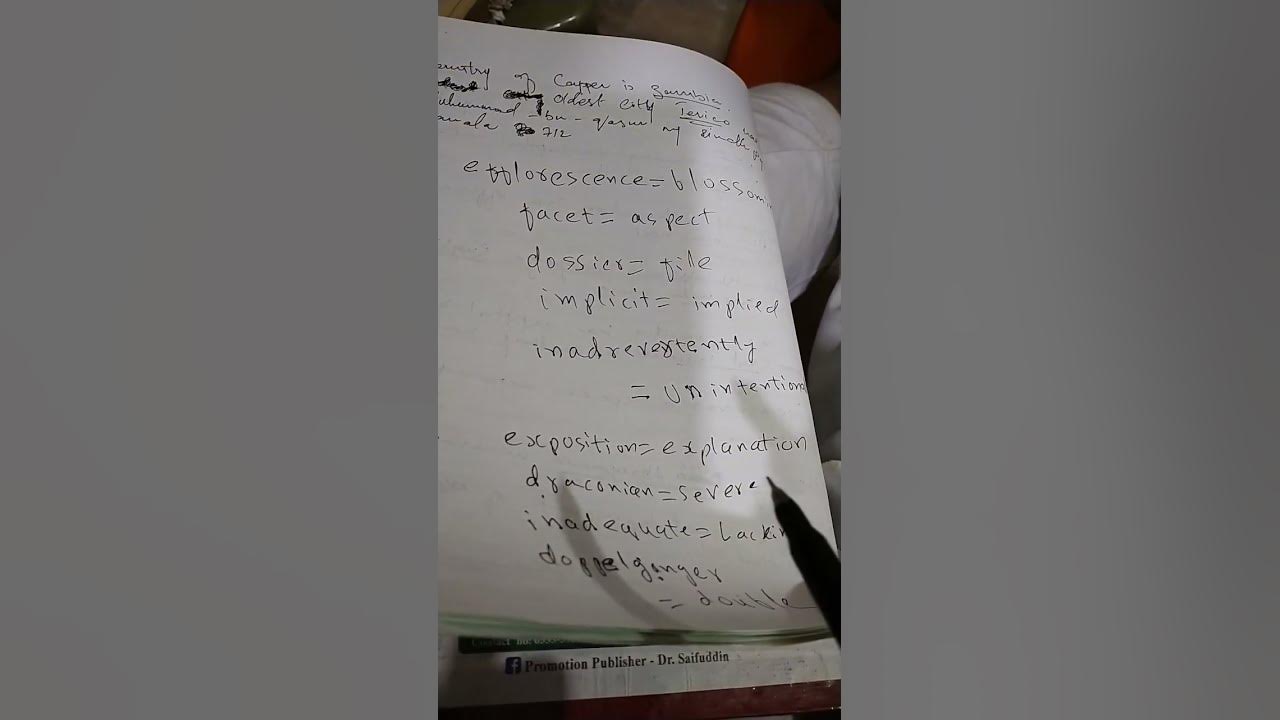 of Copper is Zambia.
oldest city Jerico
bu - qasim
712
efflorescence = blossomin
facet = aspect
dossier = file
implicit = implied
inadrevertently
= Unintentiona
exposition = explanation
draconian = severe
inadequate = Lackin
doppelganger
= double
Promotion Publisher - Dr. Saifuddin